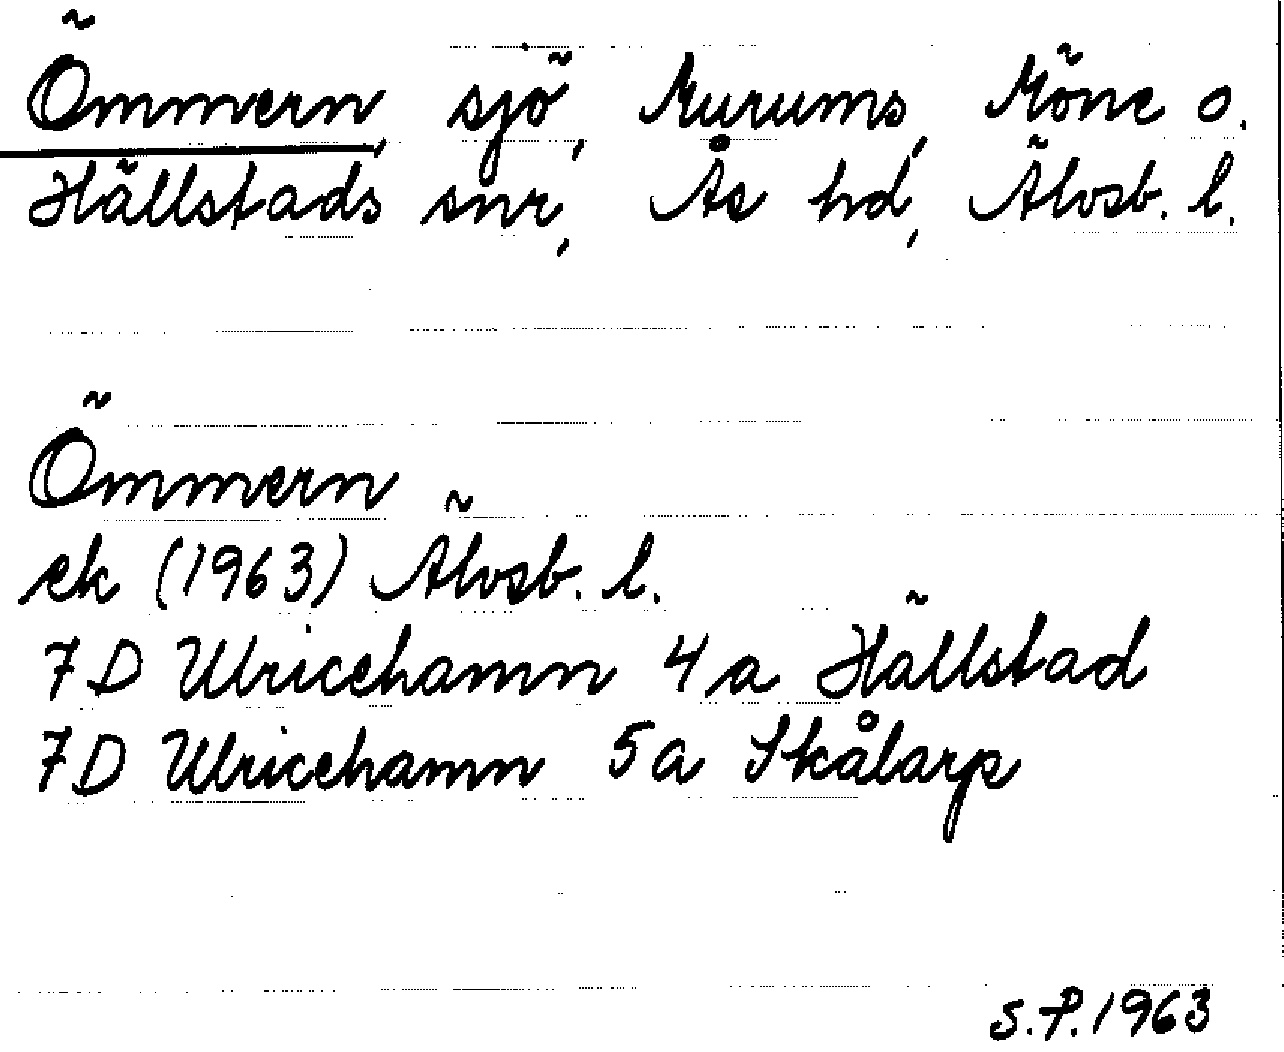 Ömmern, sjö, Murums, Möne o.
Hällstads snr, Ås hd, Älvsb. l.
Ömmern
ek (1963) Älvsb. l.
7D Ulricehamn 4a Hällstad
7D Ulricehamn 5a Skålarp
S.P. 1963